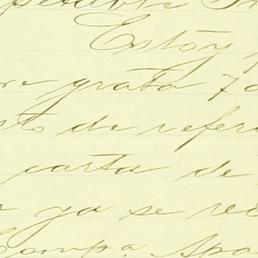 Estoy
grata 7
to de refer
carta de
ya se rec
Comp.ª